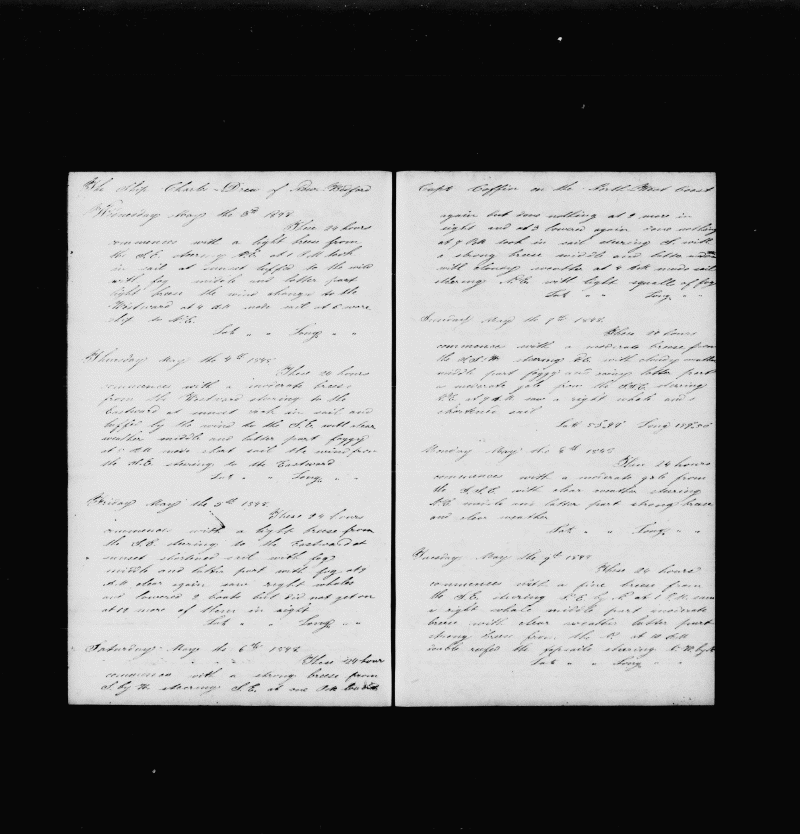 The Ship Charles Drew of New Bedford
Wednesday May the 3d 1848
These 24 hours
commences with a light breese from
the S.E. stearing N.E. at 1 P.M. took
in sail at sunset luffed to the wind
with fog middle and latter part
light breese the wind change to the
Westward at 4 A.M. made sail at 6 wore
ship to N.E.
Lat " " Long " "
Thursday May the 4th 1848
These 24 hours
commences with a moderate breese
from the Westward stearing to the
Eastward at sunset took in sail and
luffed by the wind to the S.E. with clear
weather middle and latter part foggy
at A.M. made sail the wind from
the S.E. stearing to the Eastward
Lat " " Long " "
Friday May the 5th 1848
These 24 hours
commences with a light breese from
the S.E. stearing to the Eastward at
sunset shortened sail with fog
middle and latter part with fog at 9
A.M. clear again saw right whales
and lowered 2 boats but did not get on
at 12 more of them in sight
Lat " " Long " "
Saturday May the 6th 1848
These 24 hours
commences with a strong breese from
S. by W. stearing S.E. at one P.M.
Capt Coffin on the North West Coast
again but done nothing at 2 more in
sight and at 3 lowered again done nothing
at 7 P.M. took in sail stearing with
a strong breese middle and latter
with cloudy weather at 4 A.M. made sail
stearing N.E. with light squalls of fog
Lat " " Long " "
Sunday May the 7th 1848
These 24 hours
commences with a moderate breese from
the stearing with cloudy weather
middle part foggy and rainy latter part
a moderate gale from the stearing
at 7 A.M. saw a right whale and
shortened sail
Lat Long
Monday May the 8th 1848
These 24 hours
commences with a moderate gale from
the S.S.E. with clear weather stearing
N.E. middle and latter part strong breese
and clear weather
Lat " " Long " "
Tuesday May the 9th 1848
These 24 hours
commences with a fine breese from
the S.E. stearing N.E. by N. at 1 P.M. saw
a right whale middle part moderate
breese with clear weather latter part
strong breese from the at 10 A.M.
double reefed the topsails stearing
Lat " " Long " "